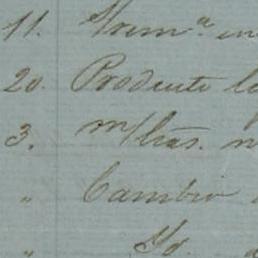 11. Frem.ª en
20. Producto l
3. m/ltás. n
" Cambio
" Yd.